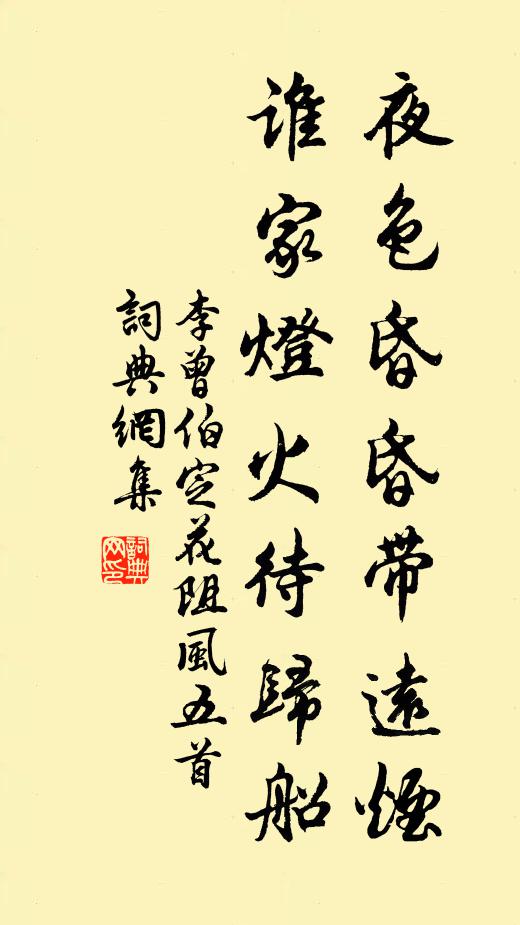 夜色昏昏帶遠煙
誰家燈火待歸船
李曾伯定花阻風五首
詞典網集
詞典網印